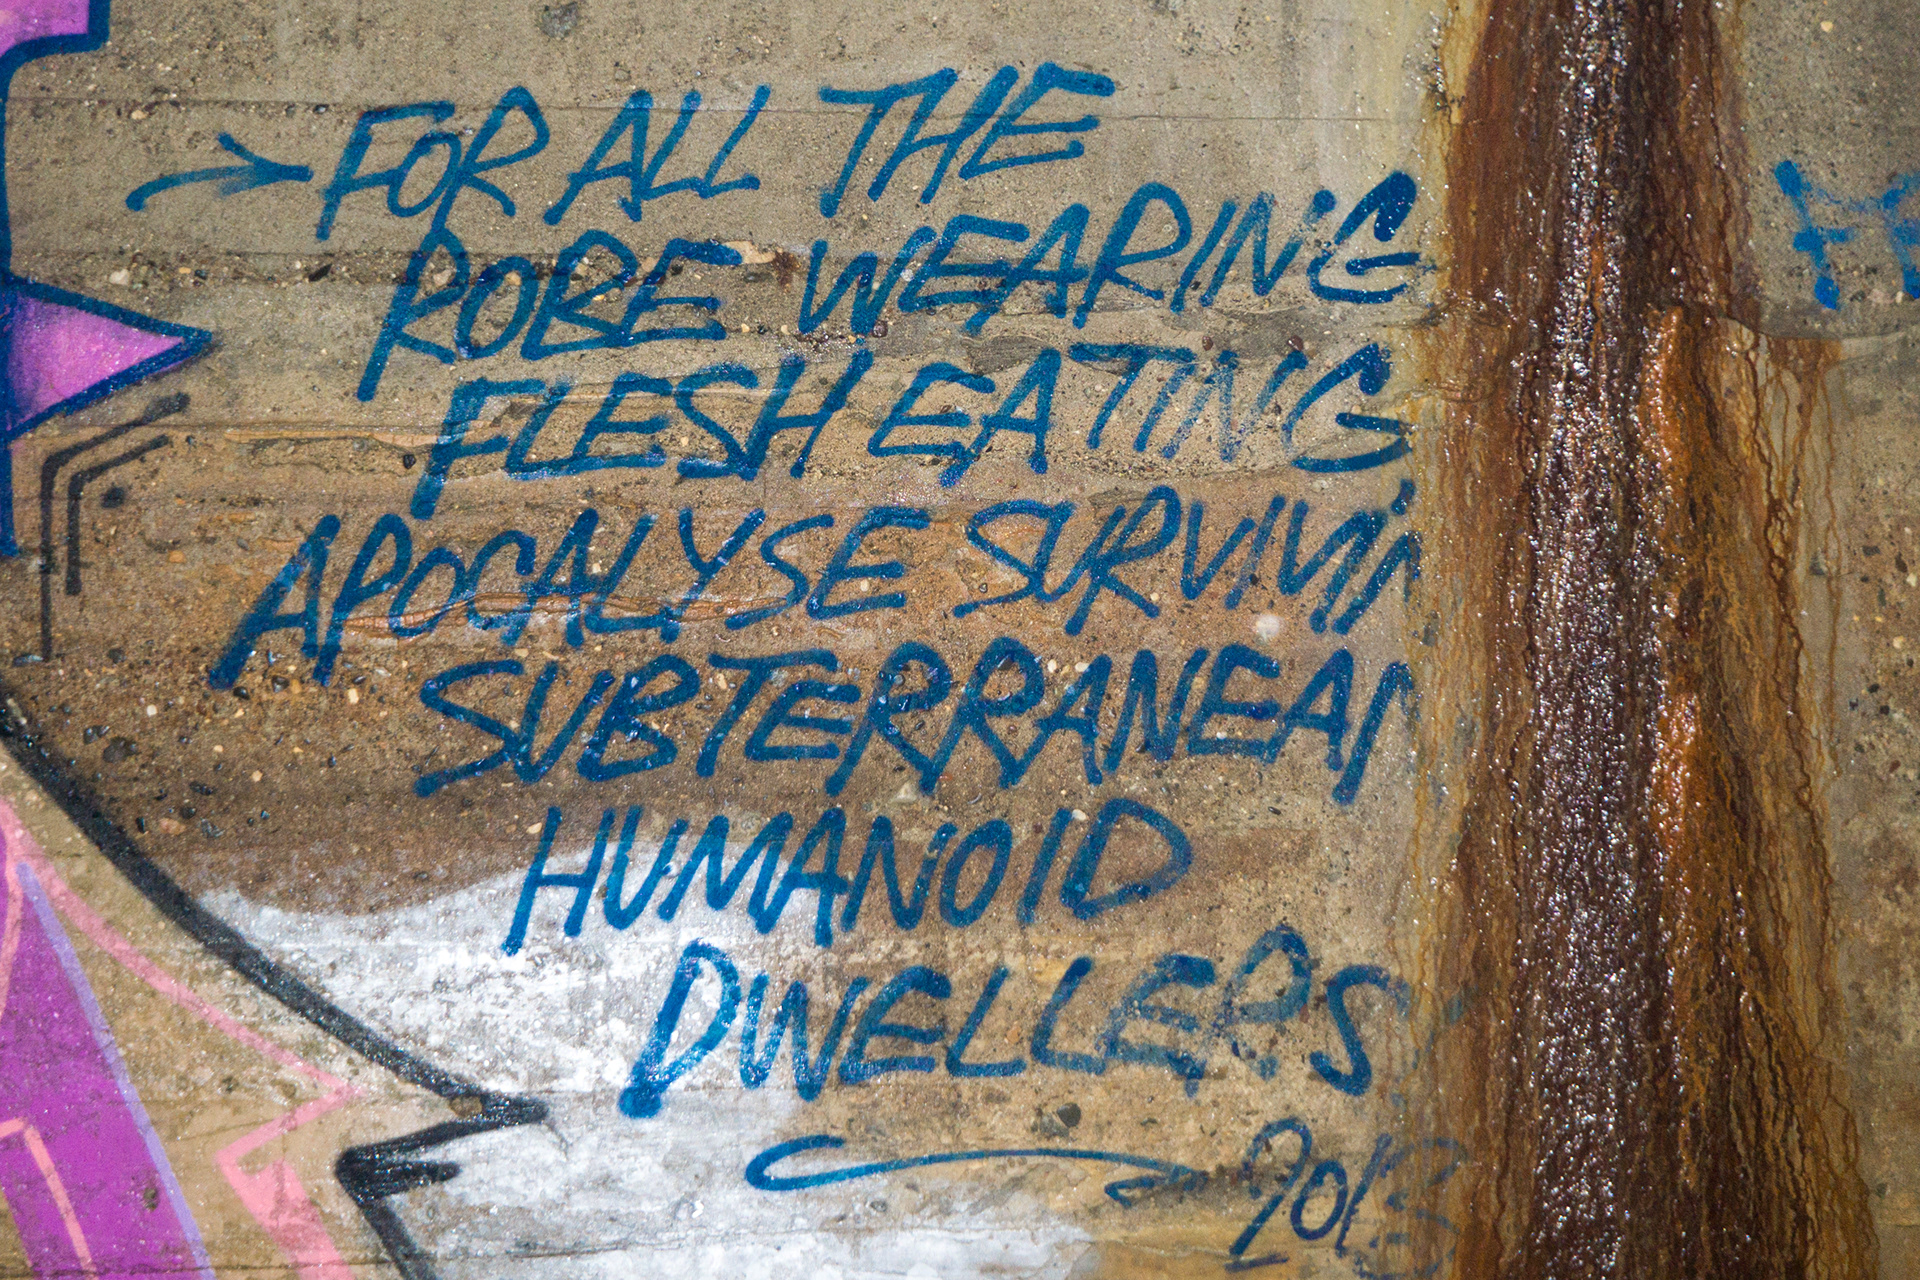 FOR ALL THE
ROBE WEARING
FLESH EATING
APOCALYSE SURVIVIN
SUBTERRANEAN
HUMANOID
DWELLERS
2013